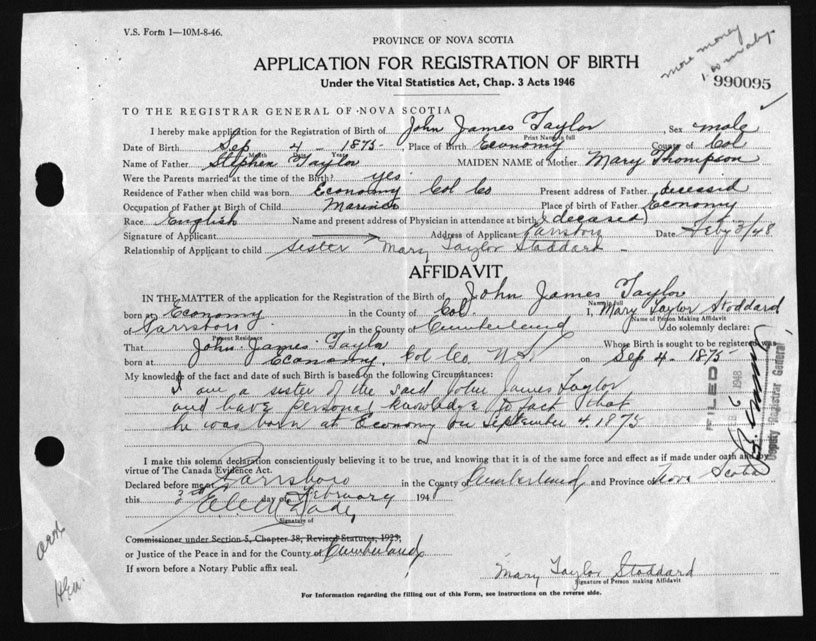 V.S. Form 1—10M-8-46.
PROVINCE OF NOVA SCOTIA
more money
APPLICATION FOR REGISTRATION OF BIRTH
Under the Vital Statistics Act, Chap. 3 Acts 1946
990095
TO THE REGISTRAR GENERAL OF NOVA SCOTIA
I hereby make application for the Registration of Birth of John James Taylor Sex male
Print Name in full
Date of Birth Sep 4 - 1875 - Place of Birth Economy County of Col
Month Day Year
Name of Father Stephen Taylor MAIDEN NAME of Mother Mary Thompson
Were the Parents married at the time of the Birth? yes
Residence of Father when child was born Economy Col Co Present address of Father deceased
Occupation of Father at Birth of Child Mariner Place of birth of Father Economy
Race English Name and present address of Physician in attendance at birth (deceased)
Signature of Applicant Address of Applicant Parrsboro Date Feby 3/48
Relationship of Applicant to child Sister Mary Taylor Stoddard
AFFIDAVIT
IN THE MATTER of the application for the Registration of the Birth of John James Taylor
Name in full
born at Economy in the County of Col. I, Mary Taylor Stoddard
Name of Person Making Affidavit
of Parrsboro in the County of Cumberland do solemnly declare:
Present Residence
That John James Taylor Whose Birth is sought to be registered was
born at Economy, Col Co. N.S. on Sep 4 - 1875
My knowledge of the fact and date of such Birth is based on the following Circumstances:
I am a sister of the said John James Taylor
and have personal knowledge to fact that
he was born at Economy on September 4 1875
FILED
1948
Deputy Registrar General
I make this solemn declaration conscientiously believing it to be true, and knowing that it is of the same force and effect as if made under oath and by
virtue of The Canada Evidence Act.
Declared before me at Parrsboro in the County Cumberland and Province of Nova Scotia
this 3rd day of February 194
Signature of
Commissioner under Section 5, Chapter 38, Revised Statutes, 1923,
or Justice of the Peace in and for the County of Cumberland
If sworn before a Notary Public affix seal.
Mary Taylor Stoddard
Signature of Person making Affidavit
For Information regarding the filling out of this Form, see instructions on the reverse side.